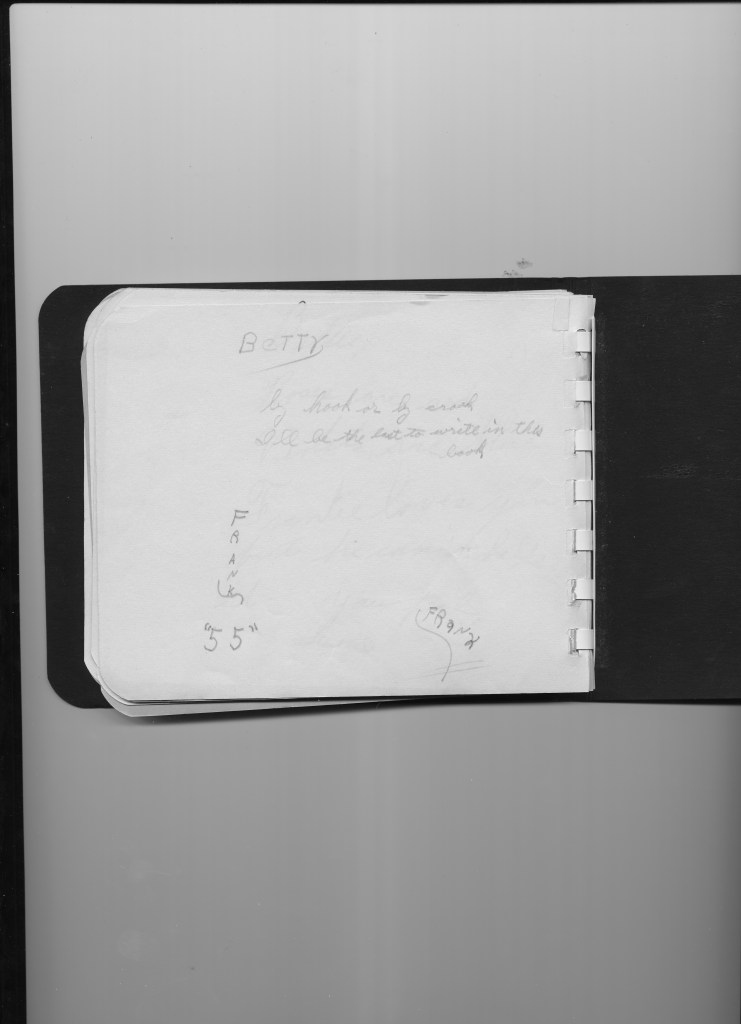 BeTTY
by hook or by crook
I'll be the last to write in this
book
FRANK
"55"
FRANK